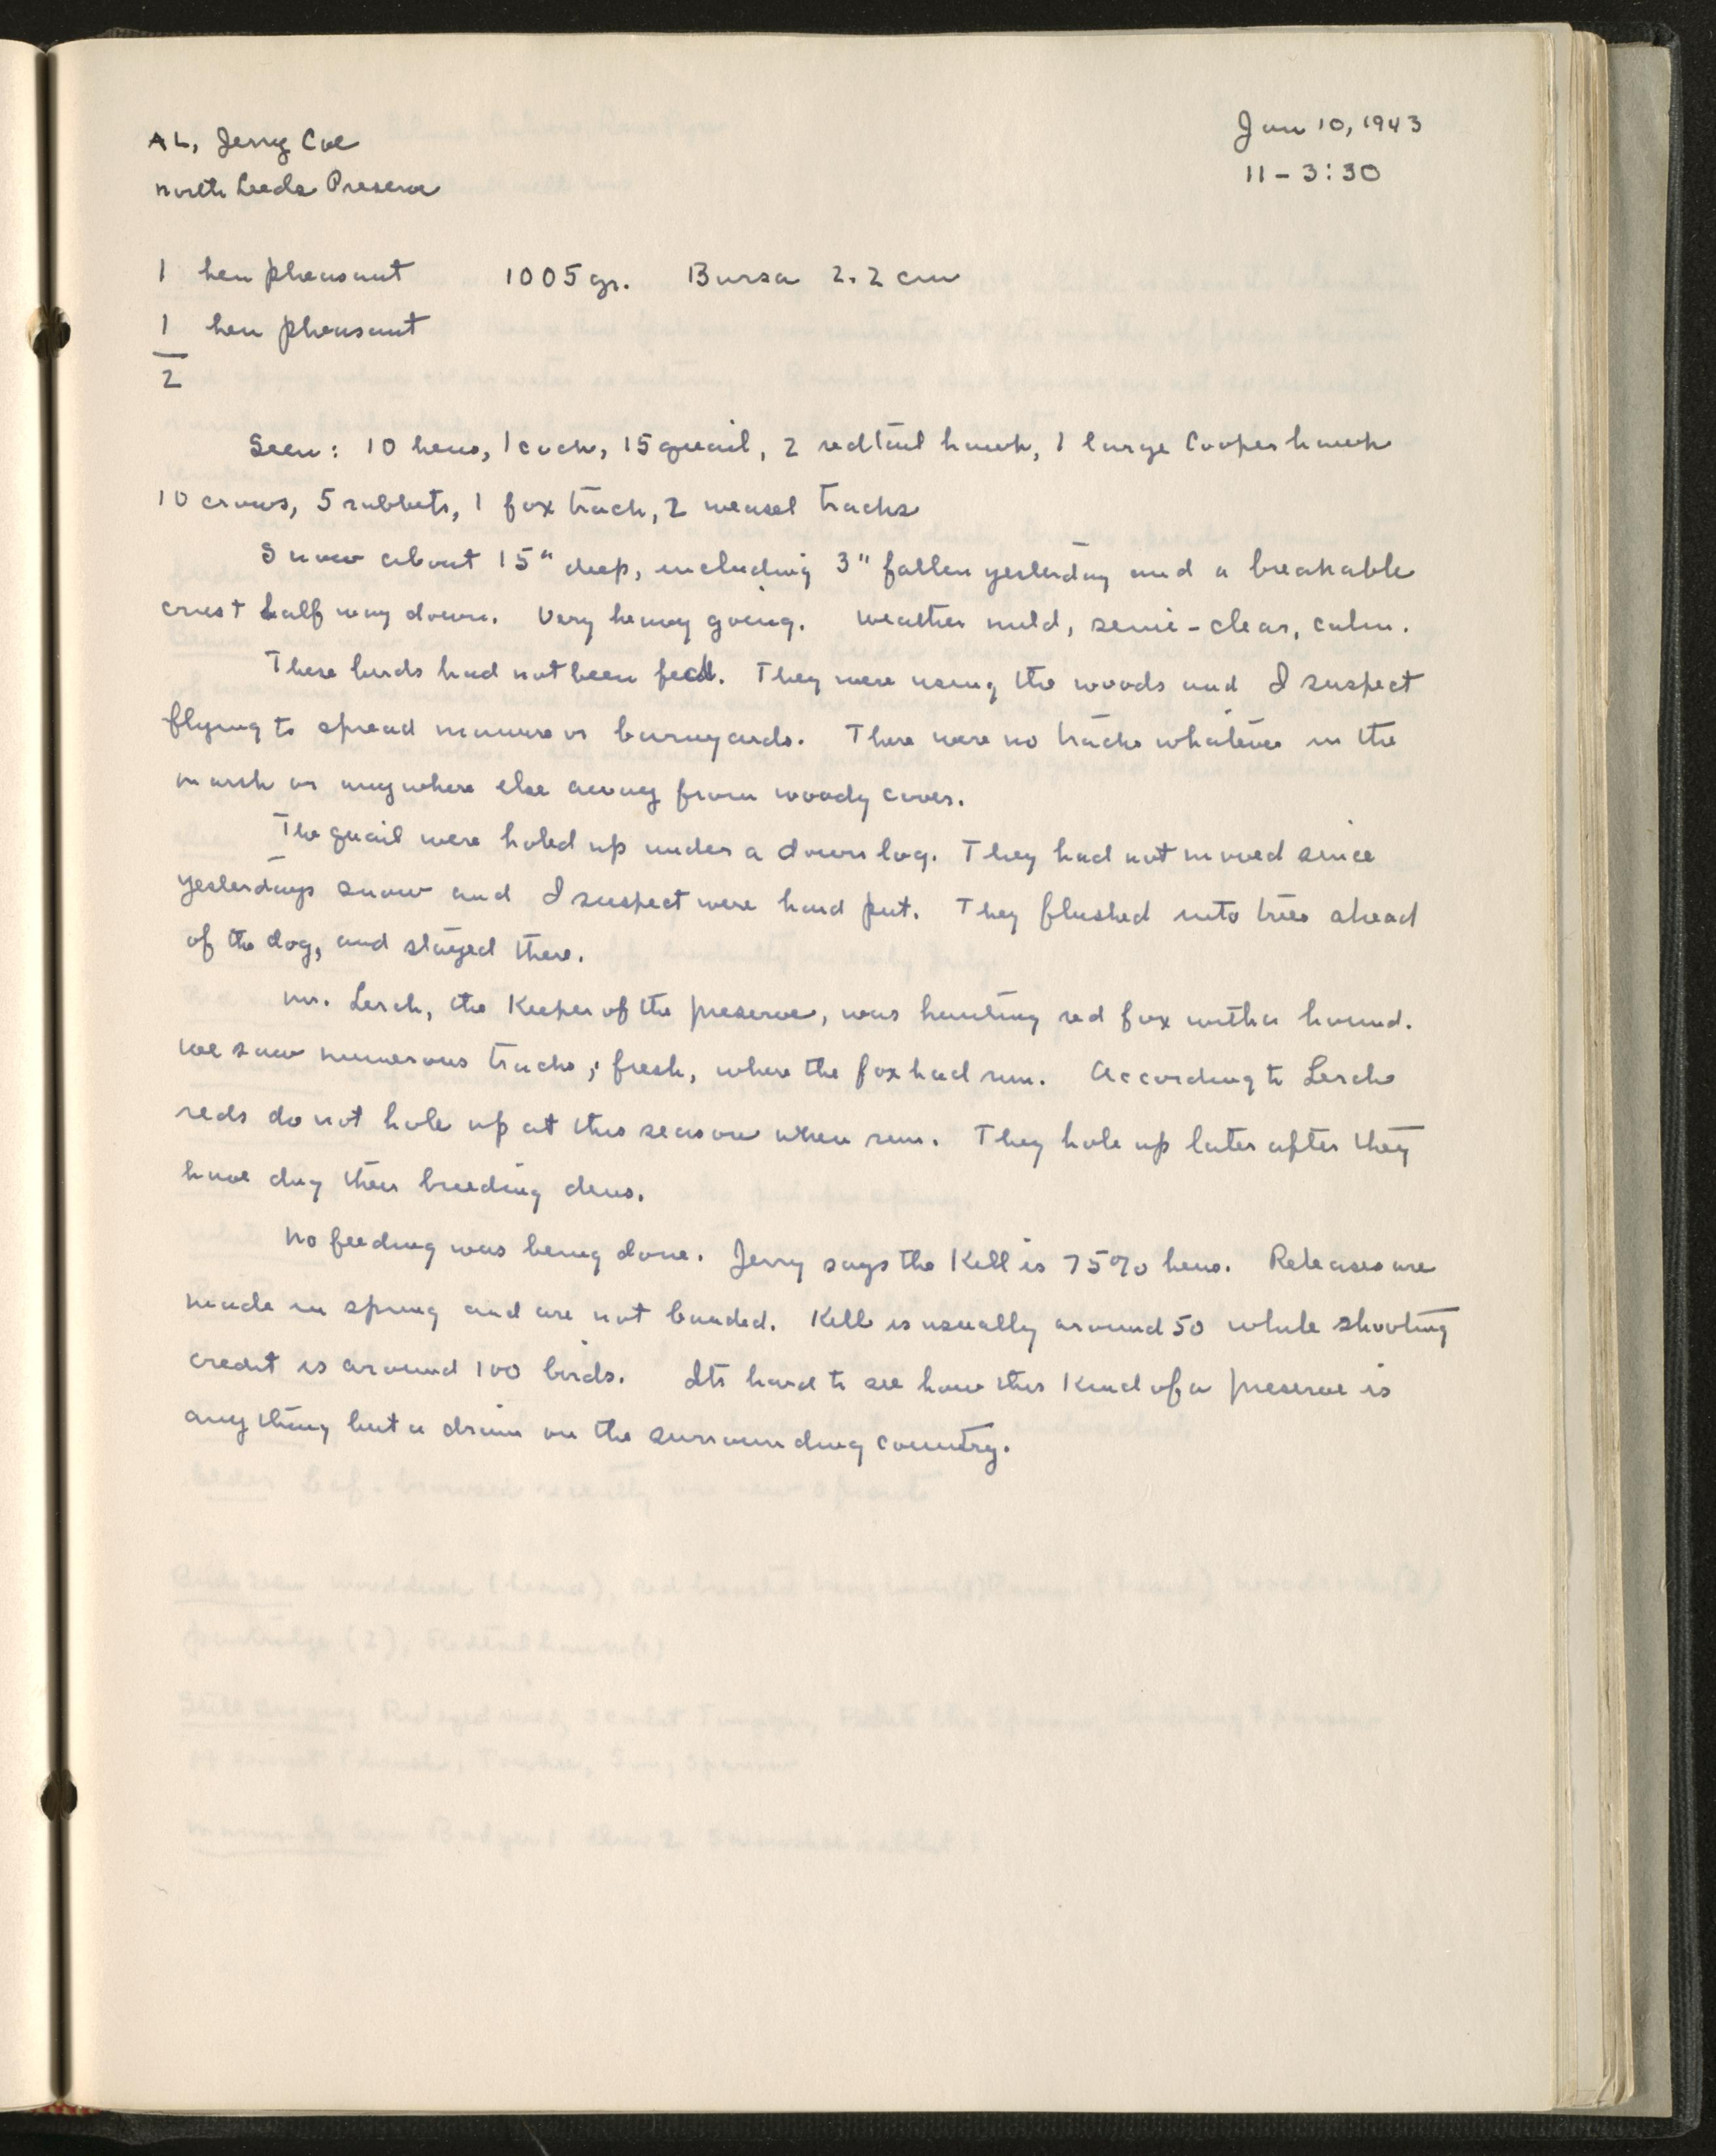 AL, Jerry Coe
Jan 10, 1943
North Leeds Preserve
11 - 3:30
1 hen pheasant 1005 gr. Bursa 2.2 cm
1 hen pheasant
2
Seen: 10 hens, 1 cock, 15 quail, 2 redtail hawk, 1 large Coopers hawk
10 crows, 5 rabbits, 1 fox track, 2 weasel tracks
Snow about 15" deep, including 3" fallen yesterday and a breakable
crust half way down. Very heavy going. Weather mild, semi-clear, calm.
These birds had not been fed. They were using the woods and I suspect
flying to spread manure or barnyards. There were no tracks whatever in the
marsh or anywhere else away from woody cover.
The quail were holed up under a down log. They had not moved since
yesterdays snow and I suspect were hard put. They flushed into trees ahead
of the dog, and stayed there.
Mr. Lerch, the Keeper of the preserve, was hunting red fox with a hound.
We saw numerous tracks, fresh, where the fox had run. According to Lerch
reds do not hole up at this season when run. They hole up later after they
have dug their breeding dens.
No feeding was being done. Jerry says the Kill is 75% hens. Releases are
made in spring and are not banded. Kill is usually around 50 while shooting
credit is around 100 birds. Its hard to see how this Kind of a preserve is
anything but a drain on the surrounding country.